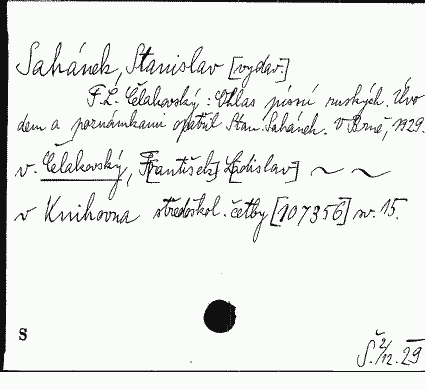 Sahánek, Stanislav [vydav.]
F. L. Čelakovský: Ohlas písní ruských. Úvo
dem a poznámkami opatřil Stan. Sahánek. V Brně, 1929.
v. Čelakovský, F[rantišek] L[adislav] ~ ~
v Knihovna středoškol. četby [107356] sv. 15.
S
Š. 2/12. 29